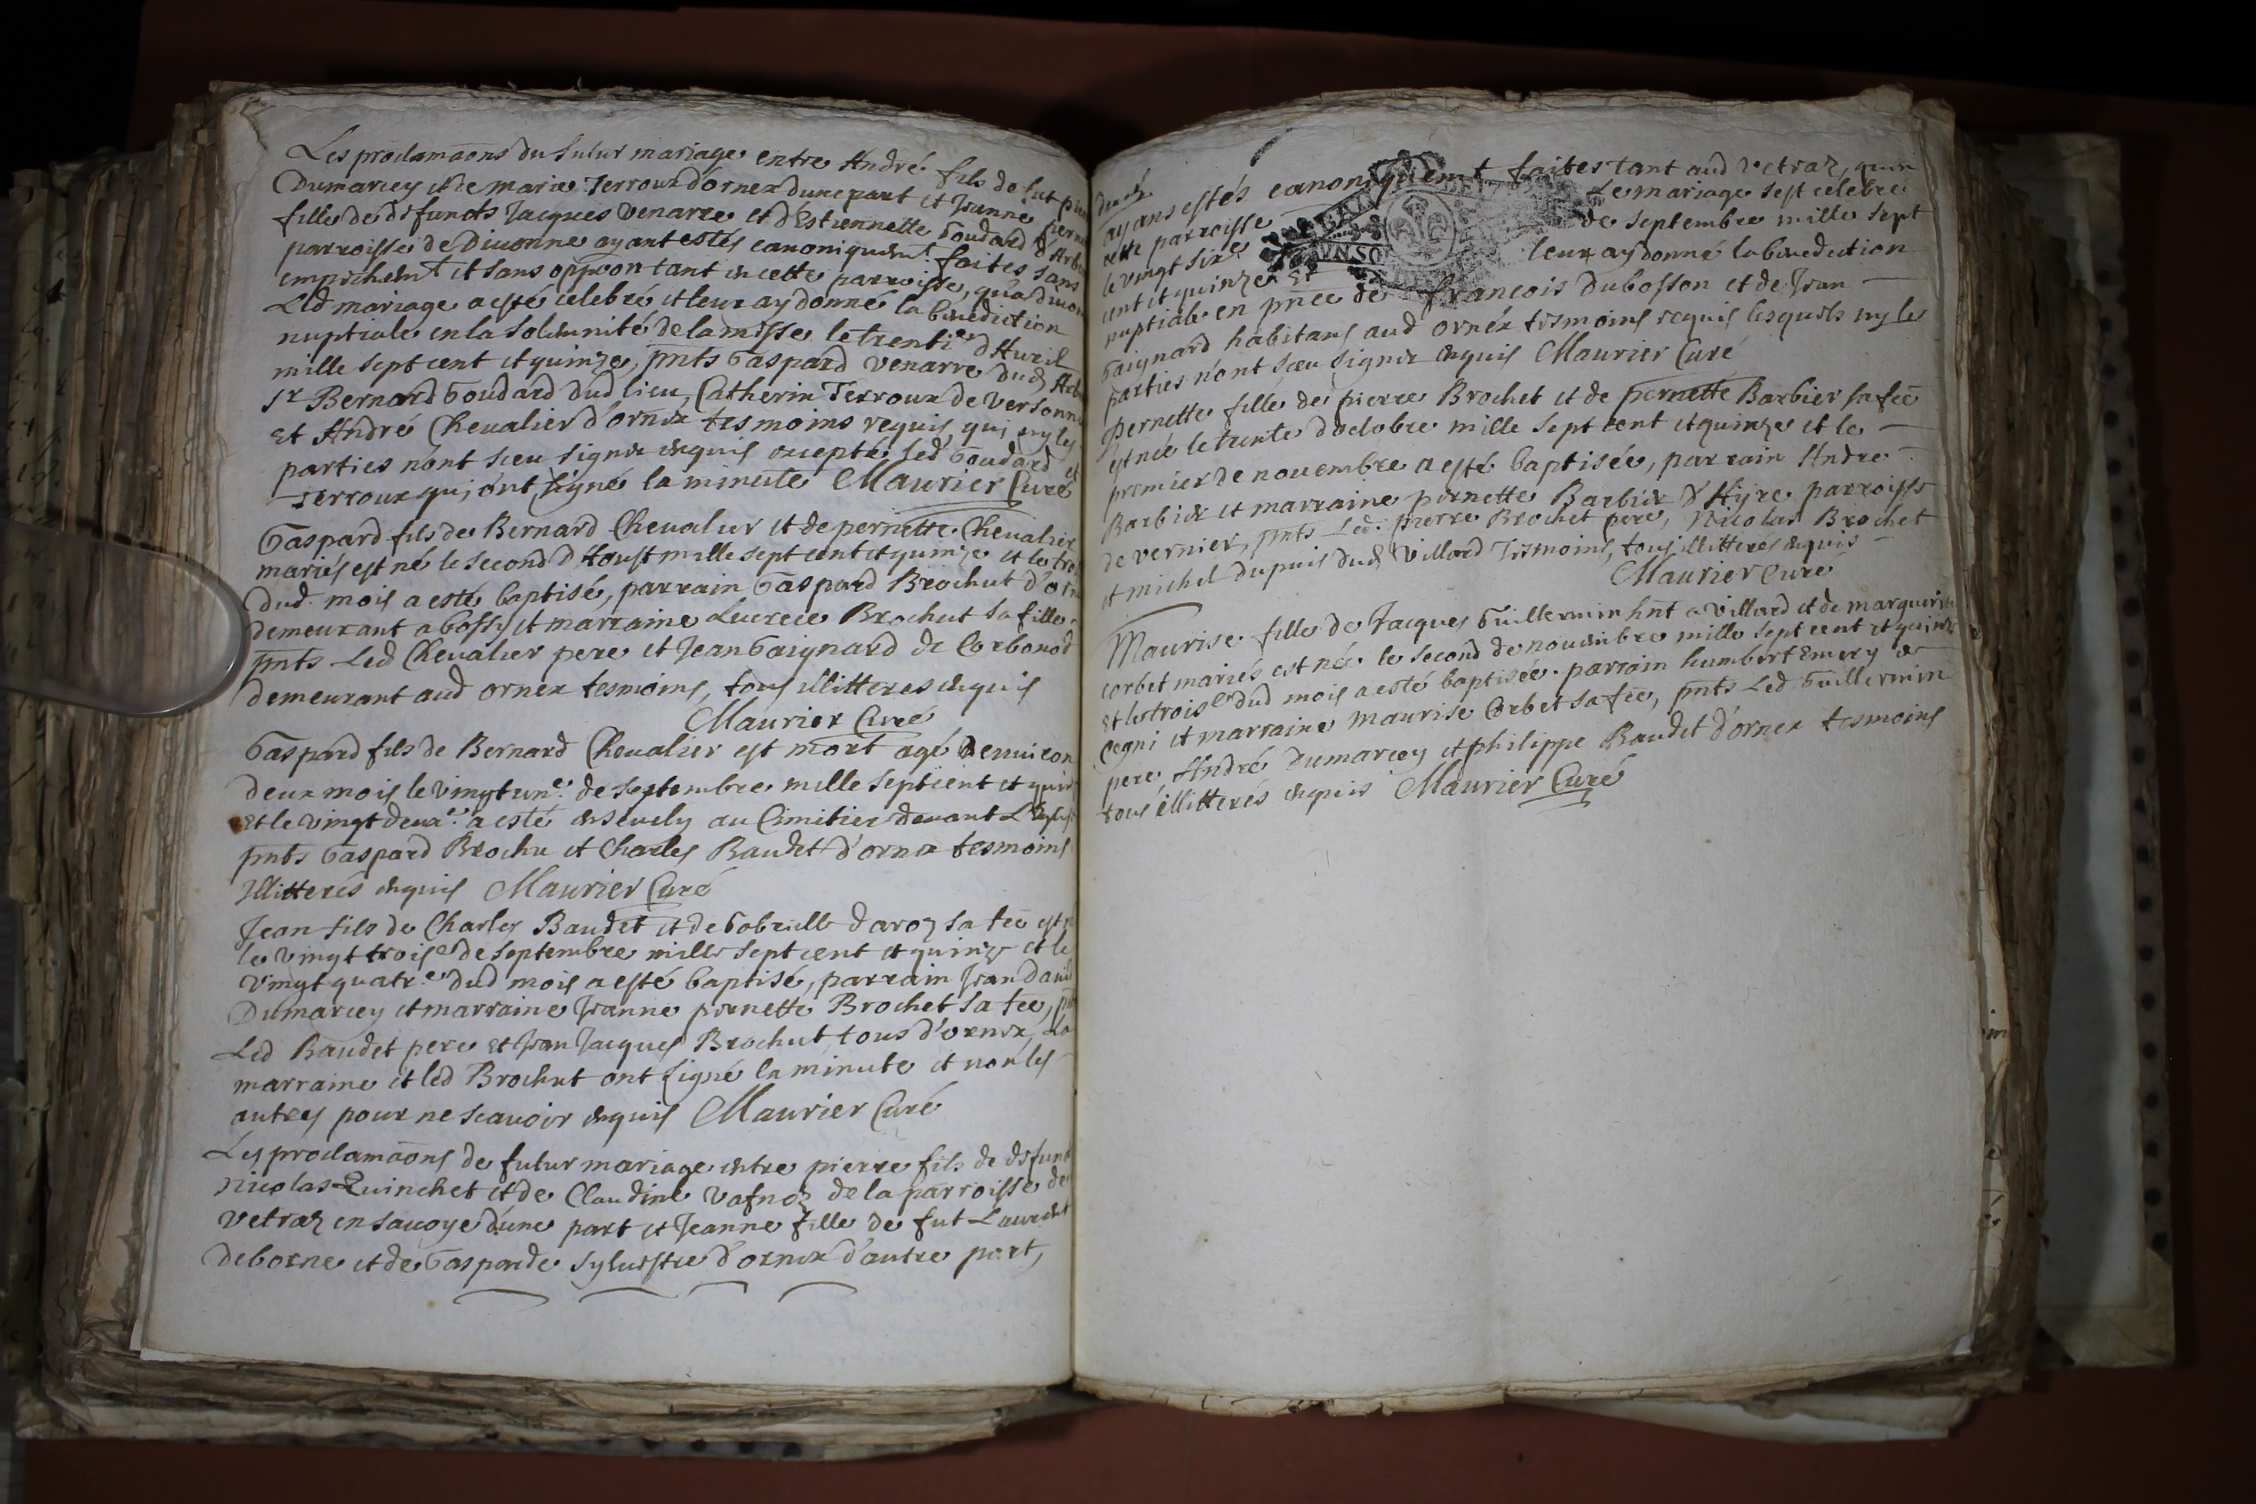 Les proclamaõns du futur mariage entre André fils de fut
Dumarcey et de marie Terroux d'ornex d'une part et Jeanne
fille de dsfuncts Jacques Venarre et d'Estiennette Goudard d'Arbe
parroisse de Diuonne ayant estés canoniquemt faites sans
empechemt et sans opposon tant en cette parroisse, qu'a diuon
Led mariage a esté celebré et leur ay donné la benediction
nuptiale en la solemnité de la messe le trenties d'Auril
mille sept cent et quinze, pnts Gaspard Venarre dud
sr Bernard Goudard dud lieu, Catherin Terroux de Versonn
et André Cheualier d'ornex tesmoins requis qui ny les
parties n'ont sceu signer enquis excepté led Goudard et
Terroux qui ont signé la minute Maurier Curé
Gaspard fils de Bernard Cheualier et de pernette Cheualier
mariés est né le second d'Aoust mille sept cent et quinze et le
dud. mois a esté baptisé, parrain Gaspard Brochut d'orn
demeurant a bossy et marraine Lucrece Brochut sa fille
pnts Led Cheualier pere et Jean Gaignard de Corbonod
demeurant aud ornex tesmoins, tous illitteres enquis
Maurier Curé
Gaspard fils de Bernard Cheualier est mort agé d'enuiron
deux mois le vingt une de septembre mille sept cent et quin
et le vingt deuxe. a esté enseuely au Cimitier deuant L'Eglis
pnts Gaspard Brochu et Charles Baudet d'ornex tesmoins
Illitterés enquis Maurier Curé
Jean fils de Charles Baudet et de Gabrielle Daroz sa fẽe est
le vingt troise de septembre mille sept cent et quinze et le
vingt quatre. dud mois a esté baptisé, parrain Jean
Dumarcey et marraine Jeanne pernette Brochet sa fẽe,
Led Baudet pere et Jean Jacques Brochut tous d'ornex, La
marraine et led Brochut ont signé la minute et non les
autres pour ne scauoir enquis Maurier Curé
Les proclamaõns de futur mariage entre pierre fils de dsfunt
nicolas Quinchet et de Claudine Vasnoz de la parroisse de
Vetraz en sauoye d'une part et Jeanne fille de fut Laurent
deborne et de Gasparde Syluestre d'ornex d'autre part,
ayans estés canoniquemt faites tant aud Vetraz, qu'en
cette parroisse Le mariage sest celebré
le vingt sixe de septembre mille sept
cent et quinze Et leur ay donné la benediction
nuptiale en pnce de francois Dubosson et de Jean
Gaignard habitans aud ornéx tesmoins requis lesquels ny les
parties n'ont sceu signer enquis Maurier Curé
Pernette fille de pierre Brochet et de pernette Barbier sa fẽe
est née le trente d'octobre mille sept cent et quinze et le
premier de nouembre a esté baptisée, parrain Andre
Barbier et marraine pernette Barbier d'Aÿre parroisse
de vernier, pnts Led: pierre Brochet pere, Nicolas Brochet
et michel dupuis dud Villard Tesmoins, tous illitterés enquis
Maurier Curé
Maurise fille de Jacques Guillermin hnt a Villard et de marguerite
corbet mariés est née le second de nouembre mille sept cent et quinze
et le troise dud mois a esté baptisée. parrain humbert Emery de
cegni et marraine Maurise Corbet sa fẽe, pnts Led Guillermin
pere, André Dumarcey et philippe Baudet d'ornex tesmoins
tous illitterés enquis Maurier Curé